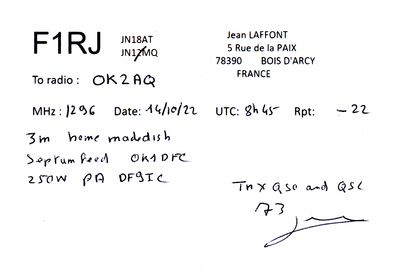 F1RJ
JN18AT
JN12MQ
Jean LAFFONT
5 Rue de la PAIX
78390 BOIS D'ARCY
FRANCE
To radio : OK2AQ
MHz : 1296 Date: 14/10/22 UTC: 8h45 Rpt: -22
3m home madedish
Septum feed OK1DFC
250W PA DF9IC
Tnx QSO and QSL
73